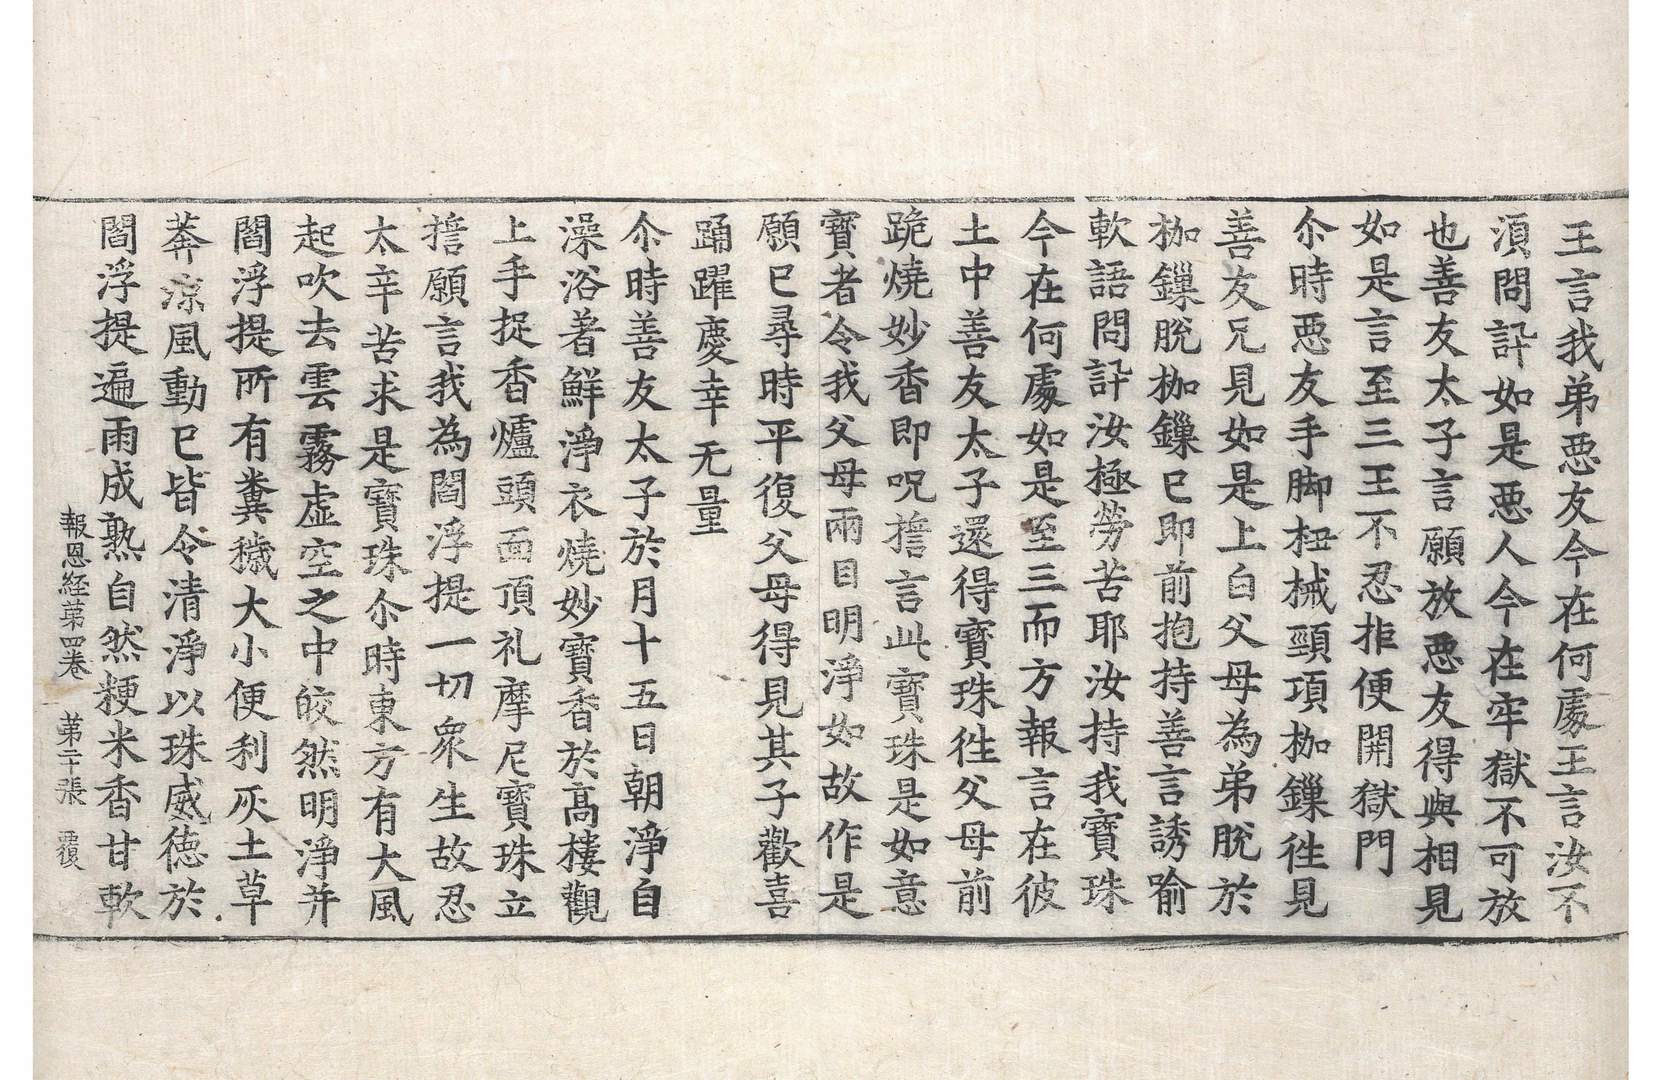 王言我弟惡友今在何處王言汝不
湏問訃如是惡人今在牢獄不可放
也善友太子言願放惡友得與相見
如是言至三王不忍拒便開獄門
尒時惡友手脚杻械頸項枷鏁徃見
善友兄見如是上白父母為弟脫於
枷鏁脫枷鏁已即前抱持善言誘喻
軟語問訃汝極勞苦耶汝持我寶珠
今在何處如是至三而方報言在彼
土中善友太子還得寶珠徃父母前
跪燒妙香即呪誓言此寶珠是如意
寶者令我父母兩目明淨如故作是
願已尋時平復父母得見其子歡喜
踊躍慶幸无量
尒時善友太子於月十五日朝淨自
澡浴著鮮淨衣燒妙寶香於髙樓觀
上手捉香爐頭面頂礼摩尼寶珠立
誓願言我為閻浮提一切衆生故忍
太辛苦求是寶珠尒時東方有大風
起吹去雲霧虛空之中皎然明淨并
閻浮提所有糞穢大小便利灰土草
莾涼風動已皆令清淨以珠威徳於
閻浮提遍雨成熟自然粳米香甘軟
報恩経苐四卷 苐二十張 覆